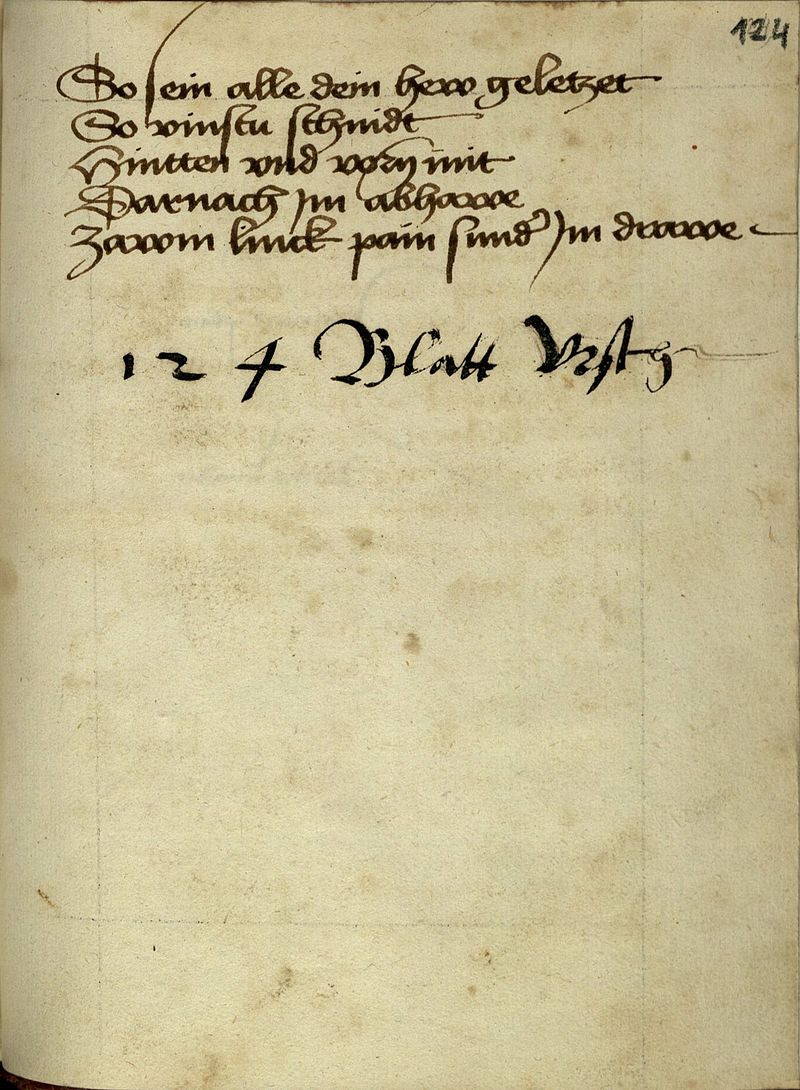 124
So sein alle dein hew geletzet
So vinstu schnidt
Hintten vnd vorn mit
Darnach Im abhawe
Zawm linck pain sund' Im drawe
124 Blatt